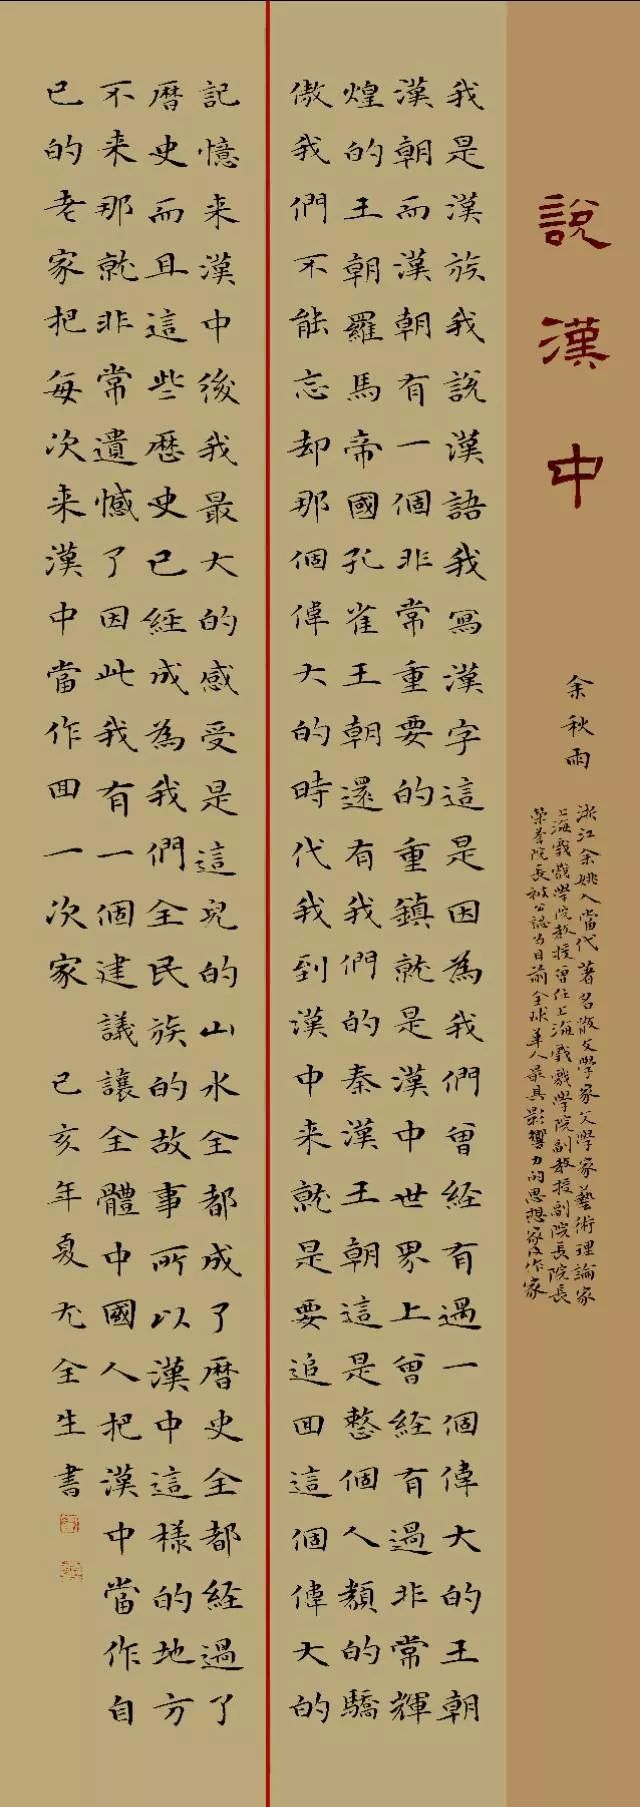 說漢中
余秋雨
浙江余姚人當代著名散文學家文學家藝術理論家
上海戲劇學院教授曾任上海戲劇學院副教授副院長院長
榮譽院長被公認為目前全球華人最具影響力的思想家及作家
我是漢族我說漢語我寫漢字這是因為我們曾經有過一個偉大的王朝
漢朝而漢朝有一個非常重要的重鎮就是漢中世界上曾經有過非常輝
煌的王朝羅馬帝國孔雀王朝還有我們的秦漢王朝這是整個人類的驕
傲我們不能忘却那個偉大的時代我到漢中来就是要追回這個偉大的
記憶来漢中後我最大的感受是這兒的山水全都成了曆史全都經過了
曆史而且這些歷史已經成為我們全民族的故事所以漢中這樣的地方
不来那就非常遺憾了因此我有一個建議讓全體中國人把漢中當作自
己的老家把每次来漢中當作回一次家 己亥年夏尤全生書